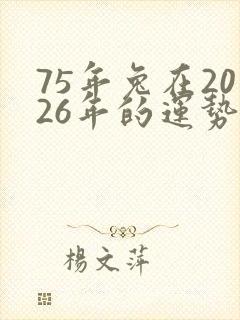 75年兔在20
26年的運势
楊文萍